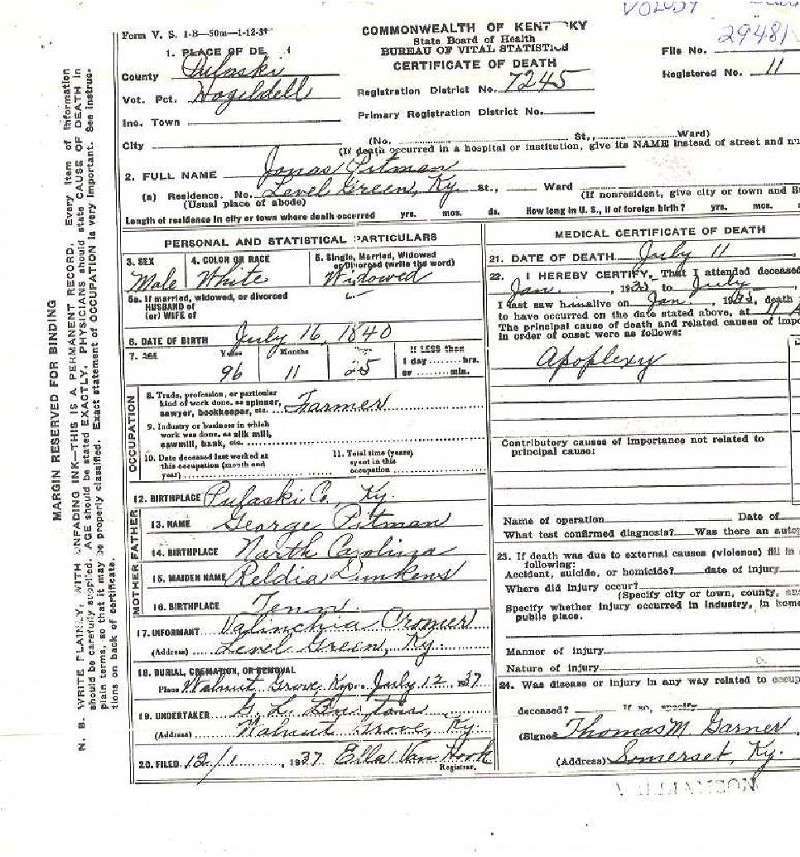 Form V. S. 1-B—50m—1-12-37
COMMONWEALTH OF KENTUCKY
State Board of Health
BUREAU OF VITAL STATISTICS
CERTIFICATE OF DEATH
File No. 29481
Registered No. 11
1. PLACE OF DE
County Pulaski
Vot. Pct.
Inc. Town
City
Registration District No. 7245
Primary Registration District No.
(No. St., Ward)
(If death occurred in a hospital or institution, give its NAME instead of street and nu
2. FULL NAME Jonas Pitman
(a) Residence. No. Level Green, Ky. St., Ward
(Usual place of abode) (If nonresident, give city or town and S
Length of residence in city or town where death occurred yrs. mos. ds. How long in U. S., if of foreign birth? yrs. mos.
PERSONAL AND STATISTICAL PARTICULARS
3. SEX
Male
4. COLOR OR RACE
White
5. Single, Married, Widowed
or Divorced (write the word)
Widowed
5a. If married, widowed, or divorced
HUSBAND of
(or) WIFE of
6. DATE OF BIRTH July 16, 1840
7. AGE Years Months Days If LESS than
96 11 25 1 day hrs.
or min.
OCCUPATION
8. Trade, profession, or particular
kind of work done, as spinner,
sawyer, bookkeeper, etc. Farmer
9. Industry or business in which
work was done, as silk mill,
sawmill, bank, etc.
10. Date deceased last worked at
this occupation (month and
year)
11. Total time (years)
spent in this
occupation
12. BIRTHPLACE Pulaski Co, Ky.
FATHER
13. NAME George Pitman
14. BIRTHPLACE North Carolina
MOTHER
15. MAIDEN NAME Reldia
16. BIRTHPLACE Tenn.
17. INFORMANT Valinchia Cromer
(Address) Level Green, Ky
18. BURIAL, CREMATION, OR REMOVAL
Place Walnut Grove, Ky. July 12 1937
19. UNDERTAKER G. L.
(Address) Walnut Grove, Ky.
20. FILED 12/1, 1937 Ella Van Hook
Registrar.
MEDICAL CERTIFICATE OF DEATH
21. DATE OF DEATH July 11
22. I HEREBY CERTIFY, That I attended deceased
Jan. , 193 to July
I last saw him alive on Jan. , 193 , death
to have occurred on the date stated above, at 11 A
The principal cause of death and related causes of impo
in order of onset were as follows:
Apoplexy
Contributory causes of importance not related to
principal cause:
Name of operation Date of
What test confirmed diagnosis? Was there an autop
23. If death was due to external causes (violence) fill in
following:
Accident, suicide, or homicide? date of injury
Where did injury occur?
(Specify city or town, county, an
Specify whether injury occurred in industry, in home
public place.
Manner of injury
Nature of injury
24. Was disease or injury in any way related to occup
deceased? If so, specify
(Signed Thomas M Garner
(Address) Somerset, Ky.
WILLIAMSON
MARGIN RESERVED FOR BINDING
N. B. WRITE PLAINLY, WITH UNFADING INK—THIS IS A PERMANENT RECORD. Every item of information
should be carefully supplied. AGE should be stated EXACTLY. PHYSICIANS should state CAUSE OF DEATH in
plain terms, so that it may be properly classified. Exact statement of OCCUPATION is very important. See instruc-
tions on back of certificate.